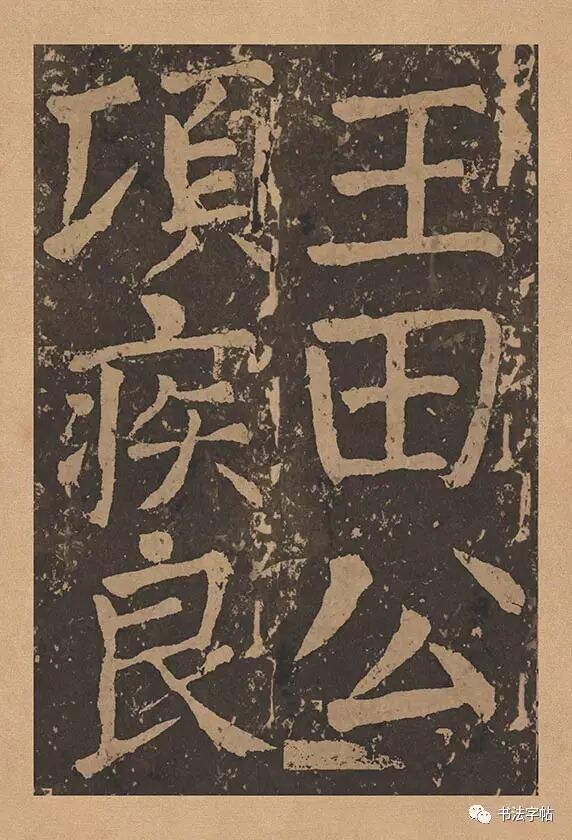 王田公
項疾良
书法字帖